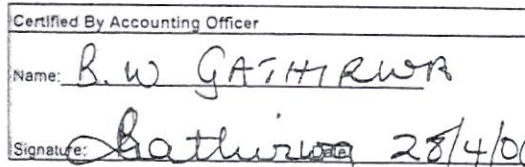 Certified By Accounting Officer
Name: B. W GATHIRWA
Signature: Gathirwa 28/4/0